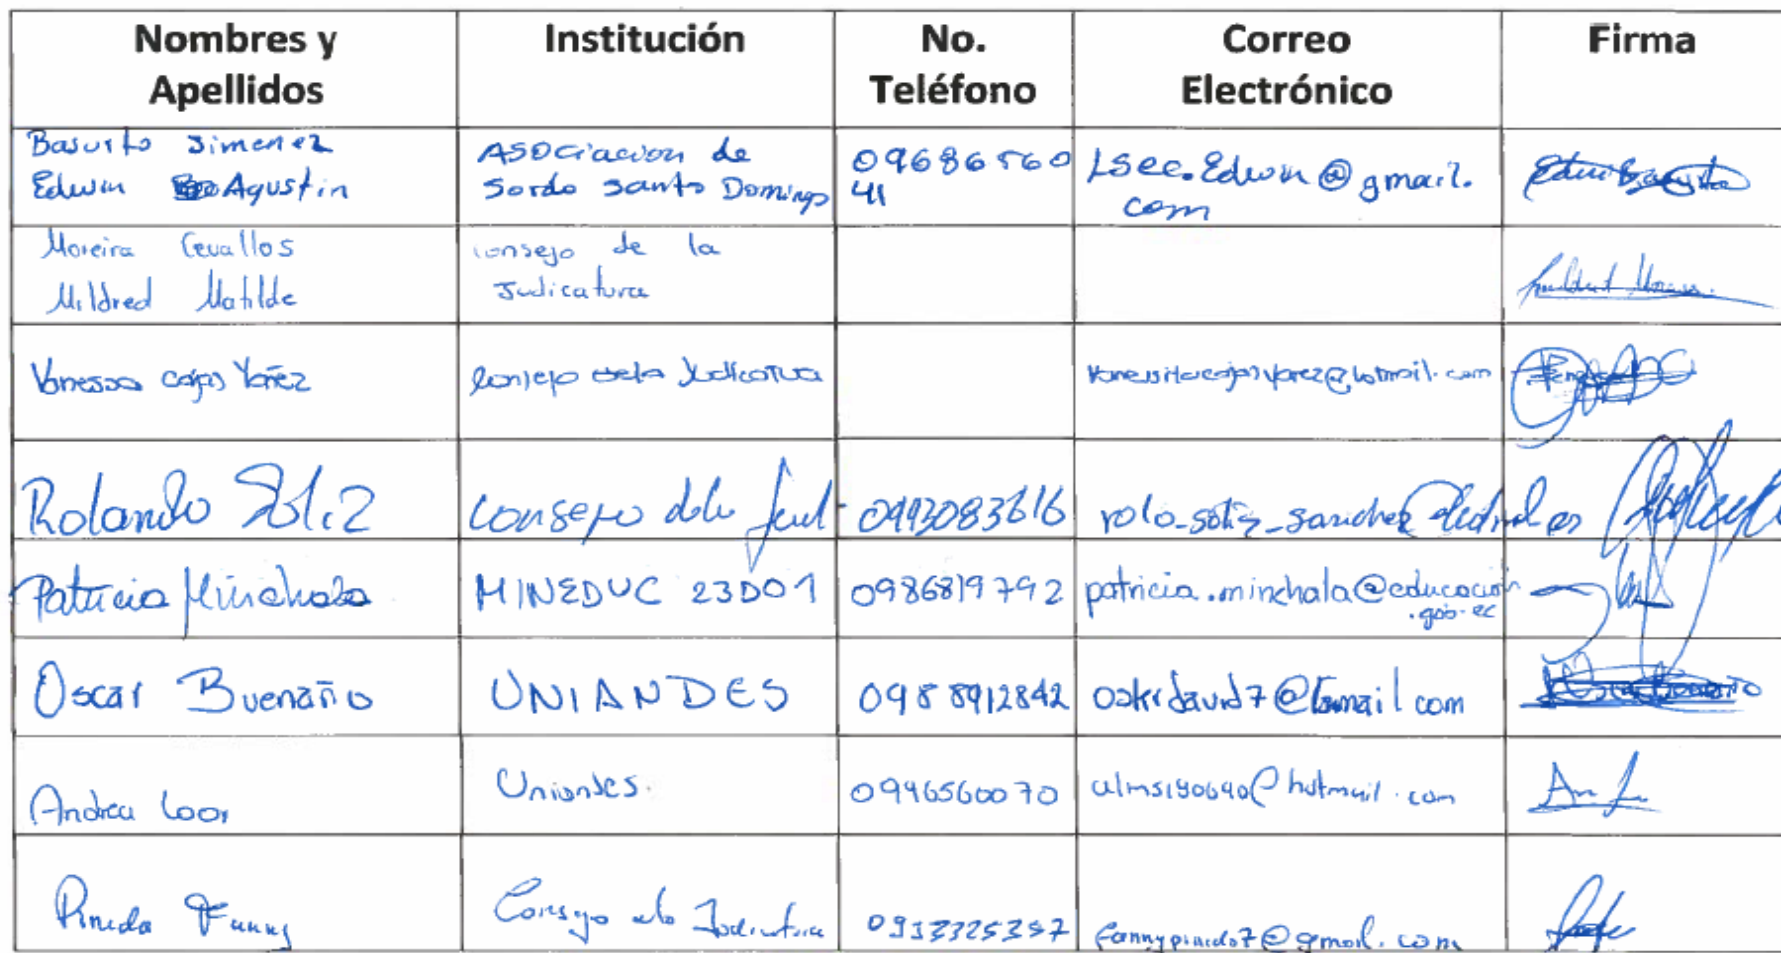 Nombres y Apellidos Institución No. Teléfono Correo Electrónico Firma
Basurto Jimenez Edwin Agustin ASOCiacion de Sordo Santo Domingo 0968656041 Lsec.Edwin@gmail.com
Moreira Cevallos Mildred Matilde Consejo de la Judicatura
Vanessa Cajas Yañez Consejo de la Judicatura
Rolando Soliz Consejo dela Jud
Patricia Minchala MINEDUC 23D01 0986819792 patricia.minchala@educacion.gob.ec
Oscar Buenaño UNIANDES 0988912842
Andrea Loor Uniandes. 0996560070
Pineda Fanny Consejo de la Judicatura fannypineda7@gmail.com